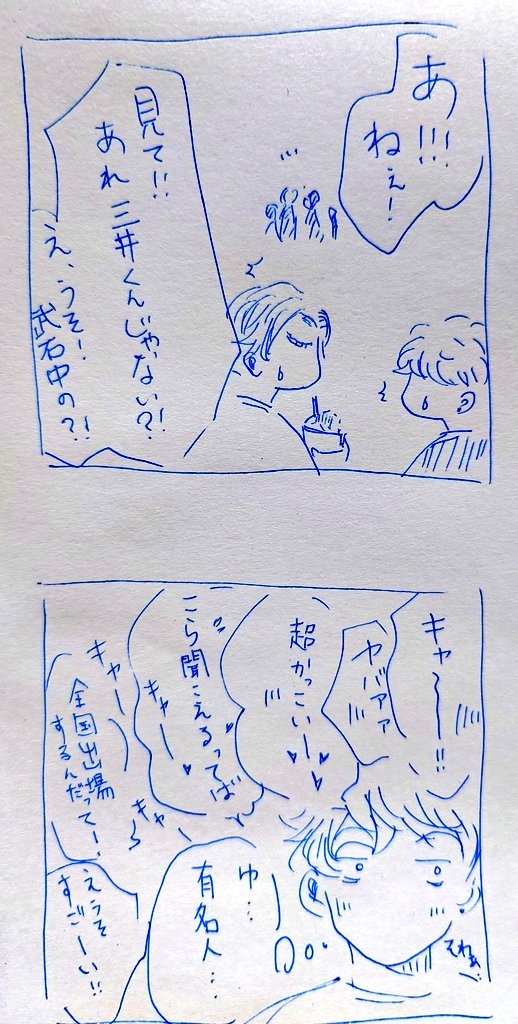 あ!!!
ねぇ!
見て!!
あれ
三井くんじゃない?!
え、うそ!
武石中の?!
キャ〜〜!!
ヤバァァ
超かっこいー
こら聞こえるってば
キャー
キャー
全国出場
するんだってー!
キャ〜
えうそ
すごーい!!
ゆ…
有名人…